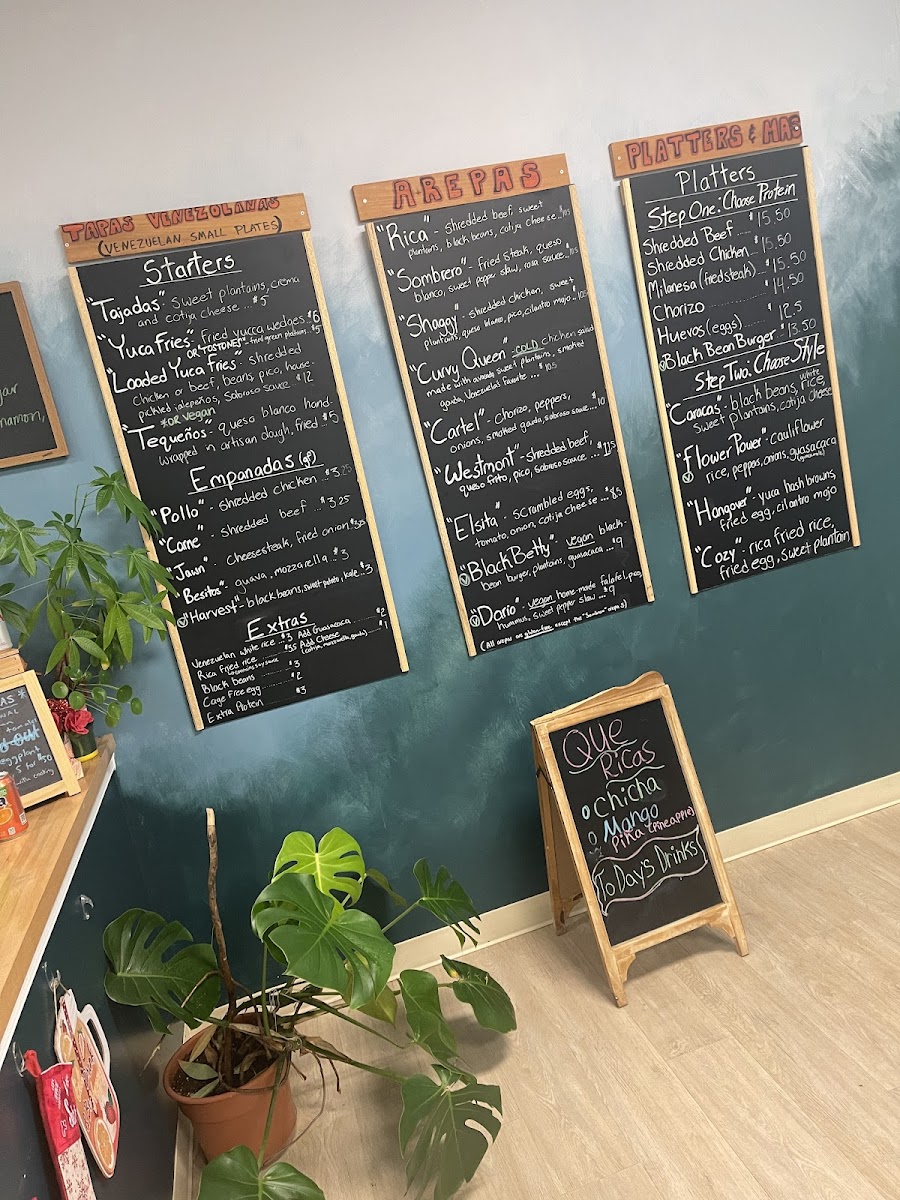 TAPAS VENEZOLANAS
(VENEZUELAN SMALL PLATES)
Starters
"Tajadas" - Sweet plantains, crema
and cotija cheese ... $5
"Yuca Fries" - fried yucca wedges $6
OR "TOSTONES" - fried green plantains $5
"Loaded Yuca Fries" - shredded
chicken or beef, beans, pico, house-
pickled jalepeños, Sabroso sauce. $12
*OR vegan
"Tequeños" - queso blanco hand-
wrapped in artisan dough, fried $5
Empanadas (gf)
"Pollo" - shredded chicken ... $3.25
"Carne" - Shredded beef ... $3.25
"Jawn" - cheesesteak, fried onion
"Besitos" - guava, mozzarella ... $3
V "Harvest" - black beans, sweet potato, kale. $3
Extras
Venezuelan white rice ... $3
Rica fried rice
*contains soy sauce
Black beans ... $3
Cage Free egg ... $2
Extra Protein ... $3
Add Guasacaca ... $2
Add Cheese ... $1
(cotija, mozzarella, gouda)
AREPAS
"Rica" - Shredded beef, sweet
plantains, black beans, cotija cheese .. $10.5
"Sombrero" - fried steak, queso
blanco, sweet pepper slaw, rosa sauce .. $11.5
"Shaggy" - shredded chicken, sweet
plantains, queso blanco, pico, cilantro mojo .. $10.5
"Curvy Queen" - COLD chicken salad
made with avocado, sweet plantains, smoked
gouda, Venezuela's favorite ... $10.5
"Cartel" - Chorizo, peppers,
onions, smoked gouda, sabroso sauce ... $10
"Westmont" - shredded beef,
queso frito, pico, sabroso sauce .... $11.5
"Elsita" - scrambled eggs,
tomato, onion, cotija cheese ... $8.5
V "Black Betty" - vegan black-
bean burger, plantains, guasacaca ... $9
V "Dario" - vegan home-made falafel, pico,
hummus, sweet pepper slaw ... $9
(All arepas are gluten-free except the "Sombrero" arepa)
PLATTERS & MAS
Platters
Step One: Choose Protein
Shredded Beef .... $15.50
Shredded Chicken .. $15.50
Milanesa (fried steak) ... $15.50
Chorizo ........ $14.50
Huevos (eggs) ... $12.5
V Black Bean Burger . $13.50
Step Two: Choose Style
"Caracas" - black beans, white rice,
sweet plantains, cotija cheese
V "Flower Power" - cauliflower
rice, peppers, onions, guasacaca
"Hangover" - yuca hash browns,
fried egg, cilantro mojo
"Cozy" - rica fried rice,
fried egg, sweet plantain
QUE
RICAS
o chicha
o Mango
Piña (Pineapple)
ToDay's Drinks!
eggplant
5 for $50